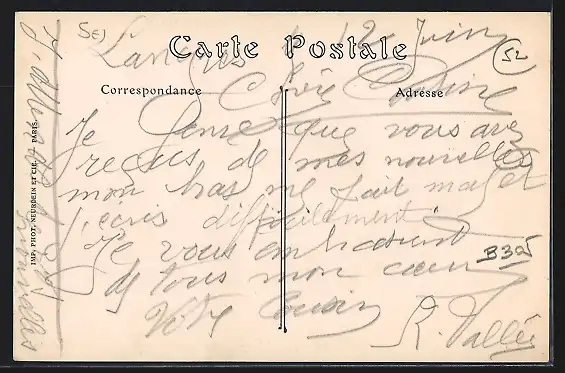 5e)
52
Langres 12 Juin
Carte Postale
Correspondance
Adresse
Chère Cousine
Je pense que vous avez
reçus de mes nouvelles
mon bras me fait mal et
j'écris difficilement.
Je vous embrassent
de tous mon cœur
Votre Cousin
R. Vallée
B 325
J'attends de
nouvelles
IMP. PHOT. NEURDEIN ET CIE. PARIS